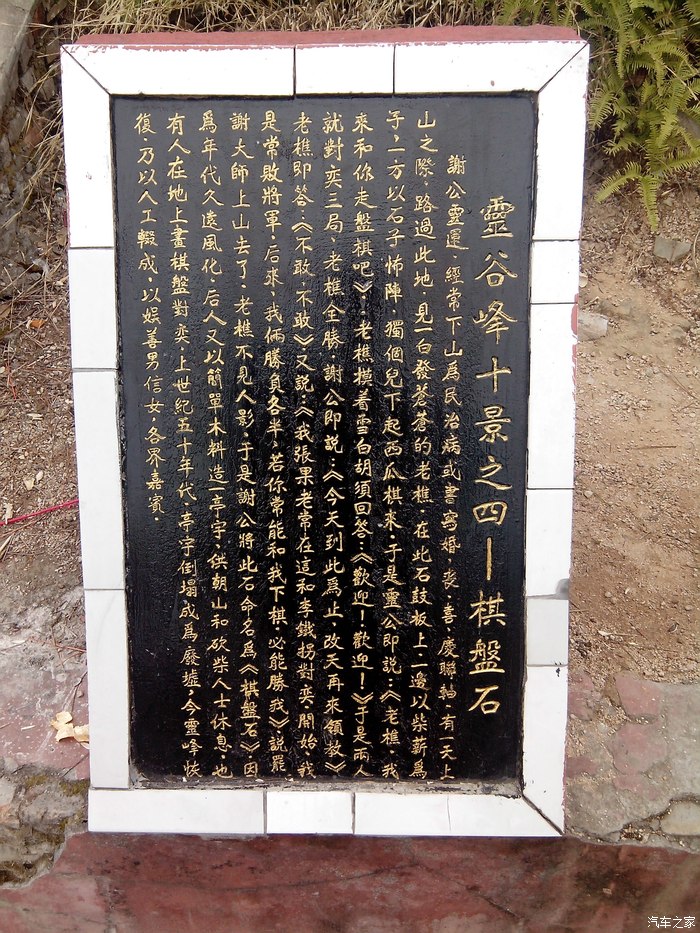 靈谷峰十景之四—棋盤石
謝公靈運、經常下山爲民治病或書寫婚,喪、喜、慶聯軸,有一天上
山之際,路過此地,見一白發蒼蒼的老樵,在此石鼓板上,一邊以柴薪爲
子,一方以石子怖陣,獨個兒下起西瓜棋來,于是靈公即説:《老樵,我
來和你走盤棋吧》!老樵摸着雪白胡須回答:《歡迎!歡迎!》于是兩人
就對奕三局、老樵全勝,謝公即説:《今天到此爲止,改天再來領教》
老樵即答:《不敢,不敢》又説:《我張果老常在這和李鐵拐對奕,開始,我
是常敗將軍,后來,我倆勝負各半,若你常能和我下棋,必能勝我》説罷,
謝大師上山去了,老樵不見人影,于是謝公將此石命名爲《棋盤石》因
爲年代久遠風化,后人又以簡單木料造一亭宇,供朝山和砍柴人士休息,也
有人在地上畫棋盤對奕,上世紀五十年代,亭宇倒塌成爲廢墟,今靈峰恢
復乃以人工輟成,以娱善男信女各界嘉賓.
汽车之家